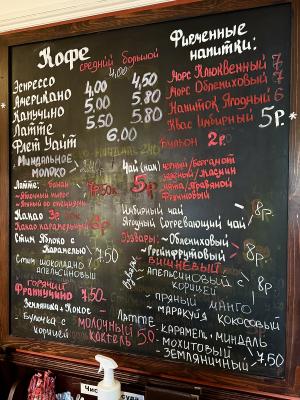 Кофе
средний большой
Эспрессо 4,00
Американо 4,00 4,50
Капучино 5,00 5,80
Латте 5,00 5,80
Флет Уайт 6,00
Миндальное
молоко
Латте: -банан
7,50
Какао 3р
Какао карамельный
Стим Яблоко с
Карамелью 7,50
Стим шоколадно
апельсиновый
горячий
Фраппучино 7,50
-Земляника-Кокос-
-Булочка с
корицей
молочный
коктель 50
Фирменные
напитки:
Морс Клюквенный 7
Морс Облепиховый 7
Напиток Ягодный 6
Квас Имбирный 5р.
Бульон 2р
Чай (чай) черный/Бергамот
5р
Имбирный чай
Ягодный Согревающий чай 8р.
Взвары: -Облепиховый
-Грейпфрутовый 8р.
Вишневый
Взвары:
-апельсиновый с
корицей
-пряный манго 8р.
-маракуйя кокосовый
Латте:
-карамель, миндаль
-мохитовый
-земляничный 7,50